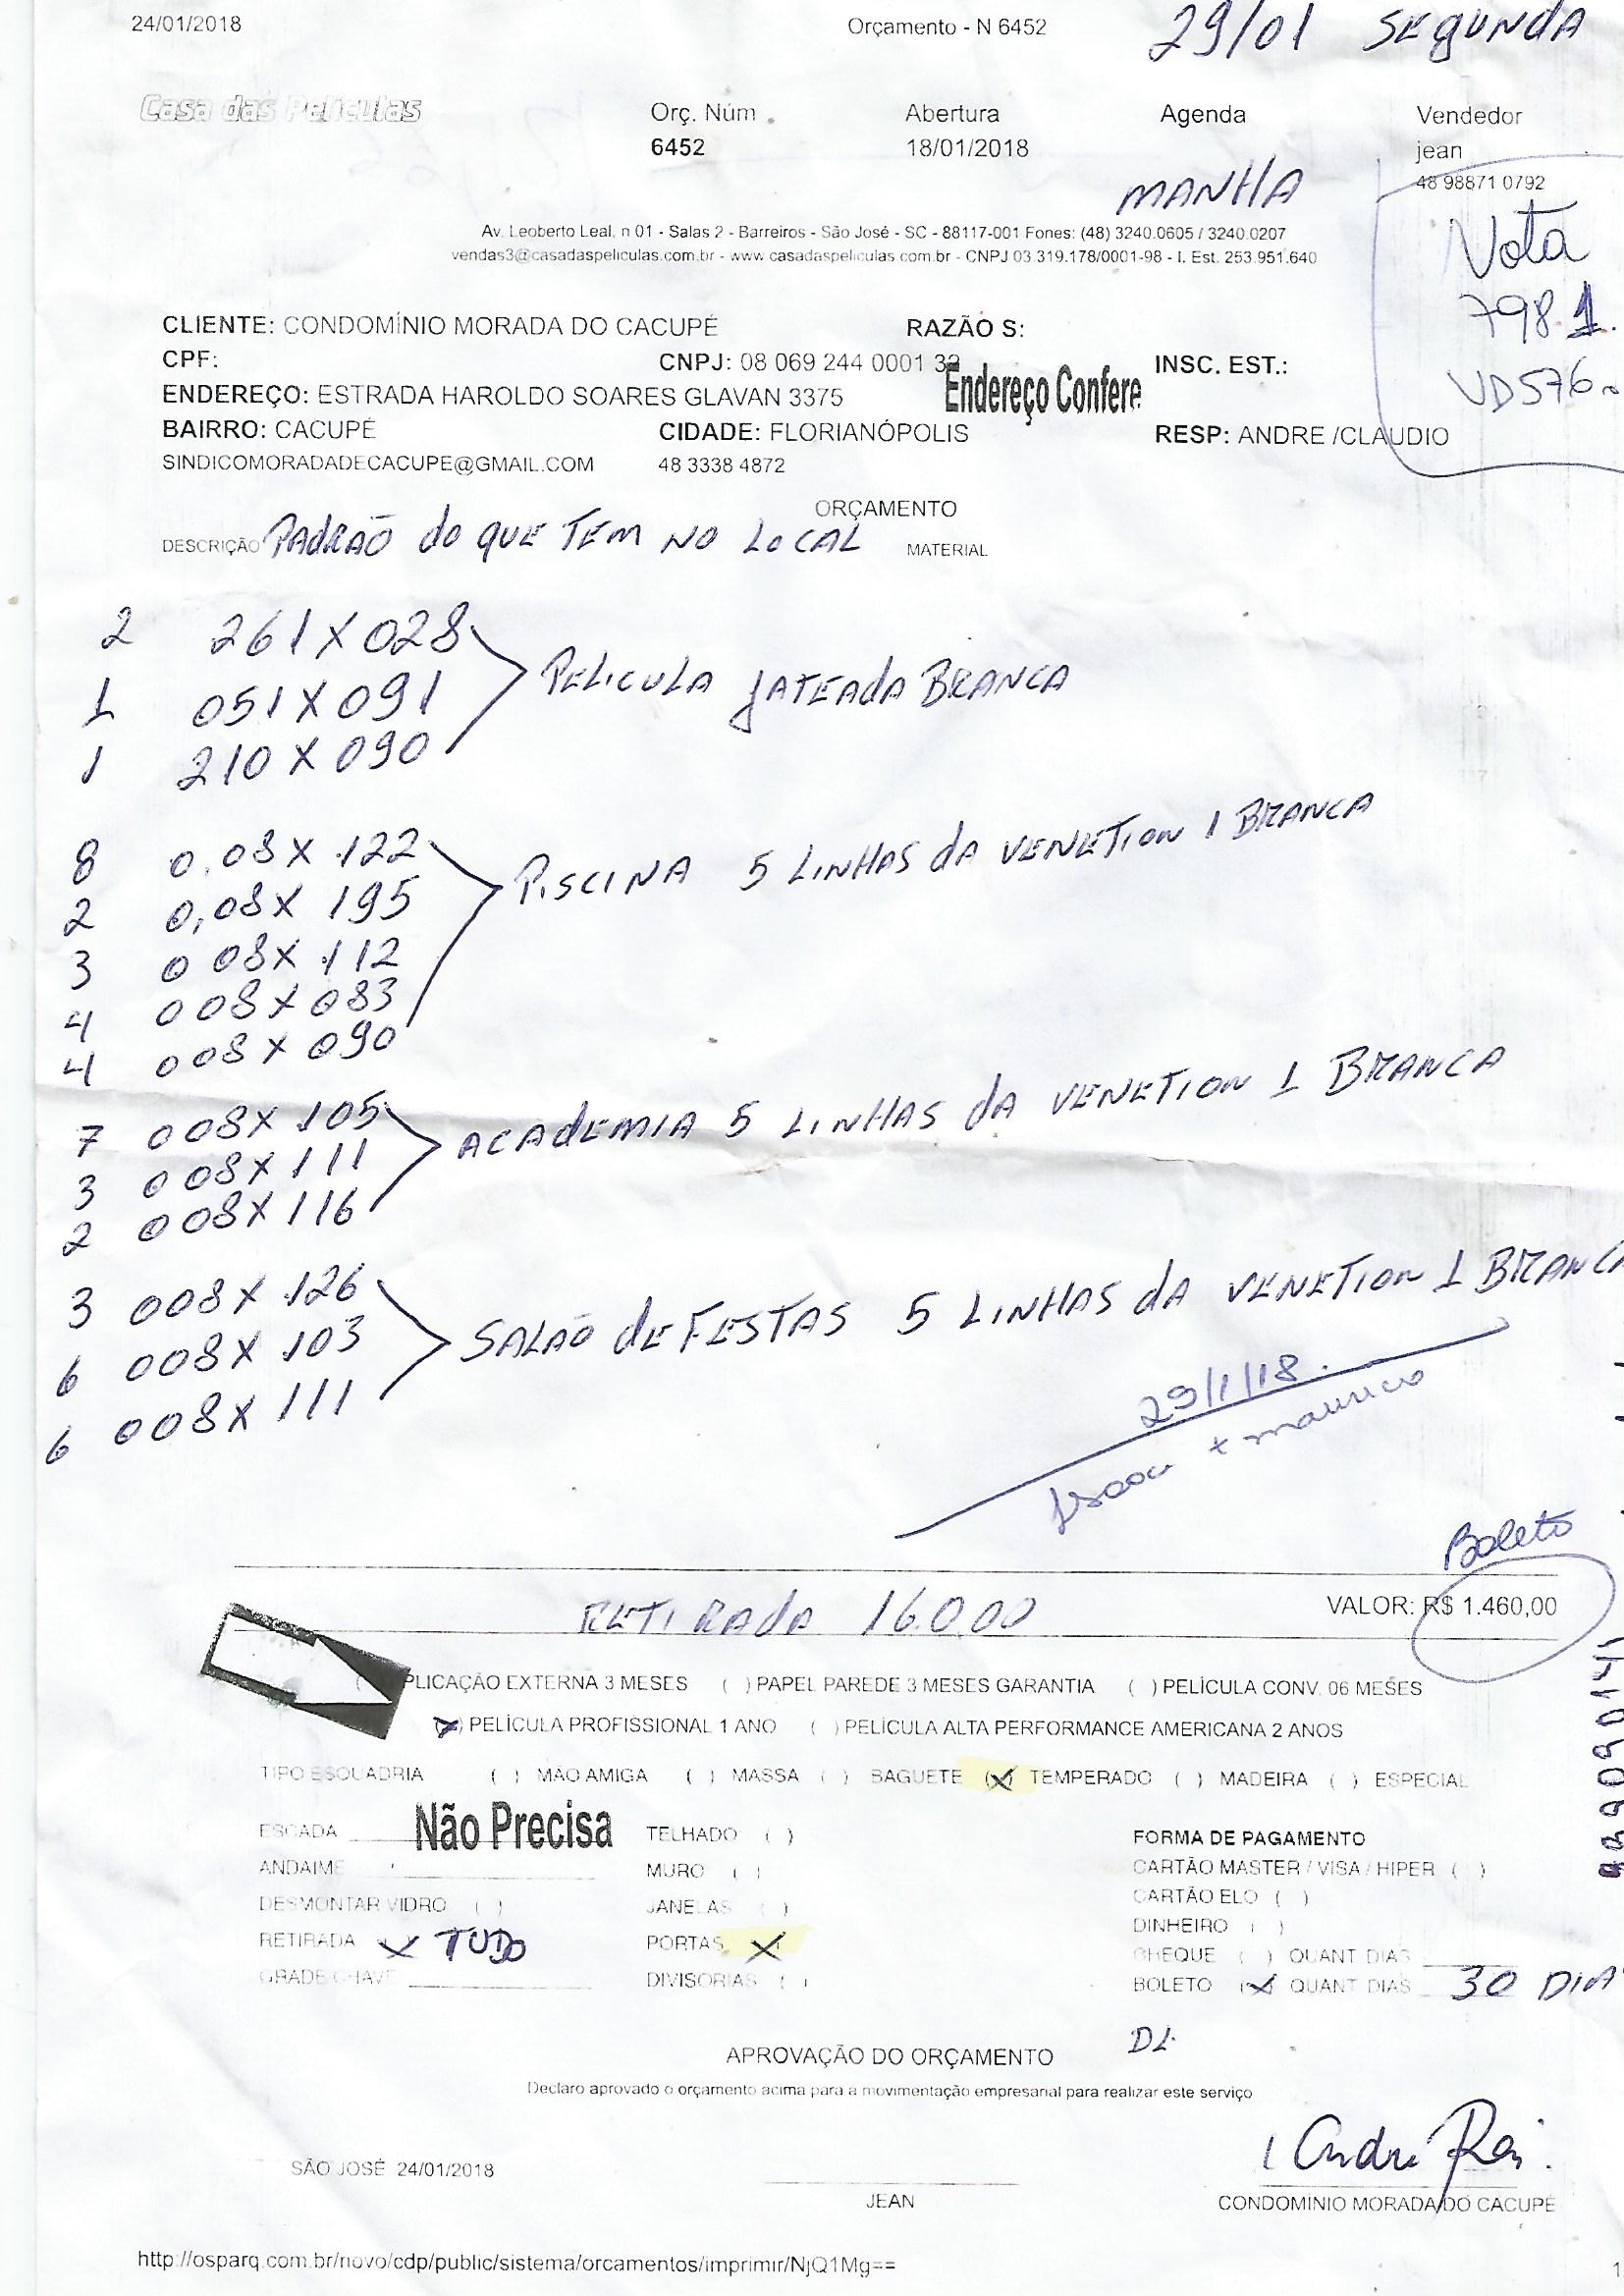 24/01/2018 Orçamento - N 6452 29/01 SEGUNDA
Casa das Películas Orç. Núm. Abertura Agenda Vendedor
6452 18/01/2018 jean
48 98871 0792
MANHA
Av. Leoberto Leal, n 01 - Salas 2 - Barreiros - São José - SC - 88117-001 Fones: (48) 3240.0605 / 3240.0207
vendas3@casadaspeliculas.com.br - www.casadaspeliculas.com.br - CNPJ 03.319.178/0001-98 - I. Est. 253.951.640
Nota
7981.
VD576
CLIENTE: CONDOMÍNIO MORADA DO CACUPÉ RAZÃO S:
CPF: CNPJ: 08 069 244 0001 32 INSC. EST.:
Endereço Confere
ENDEREÇO: ESTRADA HAROLDO SOARES GLAVAN 3375
BAIRRO: CACUPÉ CIDADE: FLORIANÓPOLIS RESP: ANDRE /CLAUDIO
SINDICOMORADADECACUPE@GMAIL.COM 48 3338 4872
ORÇAMENTO
DESCRIÇÃO PADRÃO do QUE TEM NO LOCAL MATERIAL
2 261 X 028
1 051 X 091 PELICULA JATEADA BRANCA
1 210 X 090
8 0.08 X 122
2 0,08 X 195 PISCINA 5 LINHAS da VENETION 1 BRANCA
3 0 08 X 112
4 008 X 083
4 008 X 090
7 008 X 105
3 008 X 111 ACADEMIA 5 LINHAS da VENETION 1 BRANCA
2 008 X 116
3 008 X 126
6 008 X 103 SALÃO de FESTAS 5 LINHAS da VENETION 1 BRANCA
6 008 X 111
29/1/18.
+ mauricio
Boleto
RETIRADA 160,00 VALOR: R$ 1.460,00
PLICAÇÃO EXTERNA 3 MESES ( ) PAPEL PAREDE 3 MESES GARANTIA ( ) PELÍCULA CONV. 06 MESES
(X) PELÍCULA PROFISSIONAL 1 ANO ( ) PELÍCULA ALTA PERFORMANCE AMERICANA 2 ANOS
TIPO ESQUADRIA ( ) MÃO AMIGA ( ) MASSA ( ) BAGUETE (X) TEMPERADO ( ) MADEIRA ( ) ESPECIAL
ESCADA Não Precisa TELHADO ( ) FORMA DE PAGAMENTO
ANDAIME MURO ( ) CARTÃO MASTER / VISA / HIPER ( )
DESMONTAR VIDRO ( ) JANELAS ( ) CARTÃO ELO ( )
DINHEIRO ( )
RETIRADA X TUDO PORTAS X CHEQUE ( ) QUANT DIAS
GRADE CHAVE DIVISORIAS ( ) BOLETO (X) QUANT DIAS 30 DIA
DL
APROVAÇÃO DO ORÇAMENTO
Declaro aprovado o orçamento acima para a movimentação empresarial para realizar este serviço
SÃO JOSÉ 24/01/2018
JEAN CONDOMÍNIO MORADA DO CACUPÉ
http://osparq.com.br/novo/cdp/public/sistema/orcamentos/imprimir/NjQ1Mg==